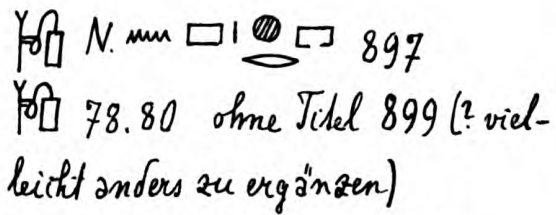 𓏞 N. 𓈖 𓈙 𓏤 𓐍 𓂋 𓉐 897
𓏞 78.80 ohne Titel 899 (? viel-
leicht anders zu ergänzen)